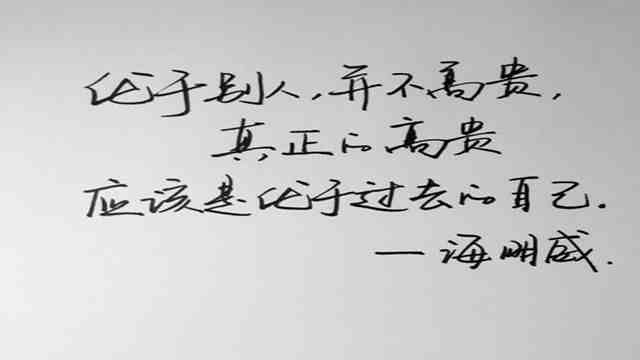 优于别人,并不高贵,
真正的高贵
应该是优于过去的自己.
—海明威.